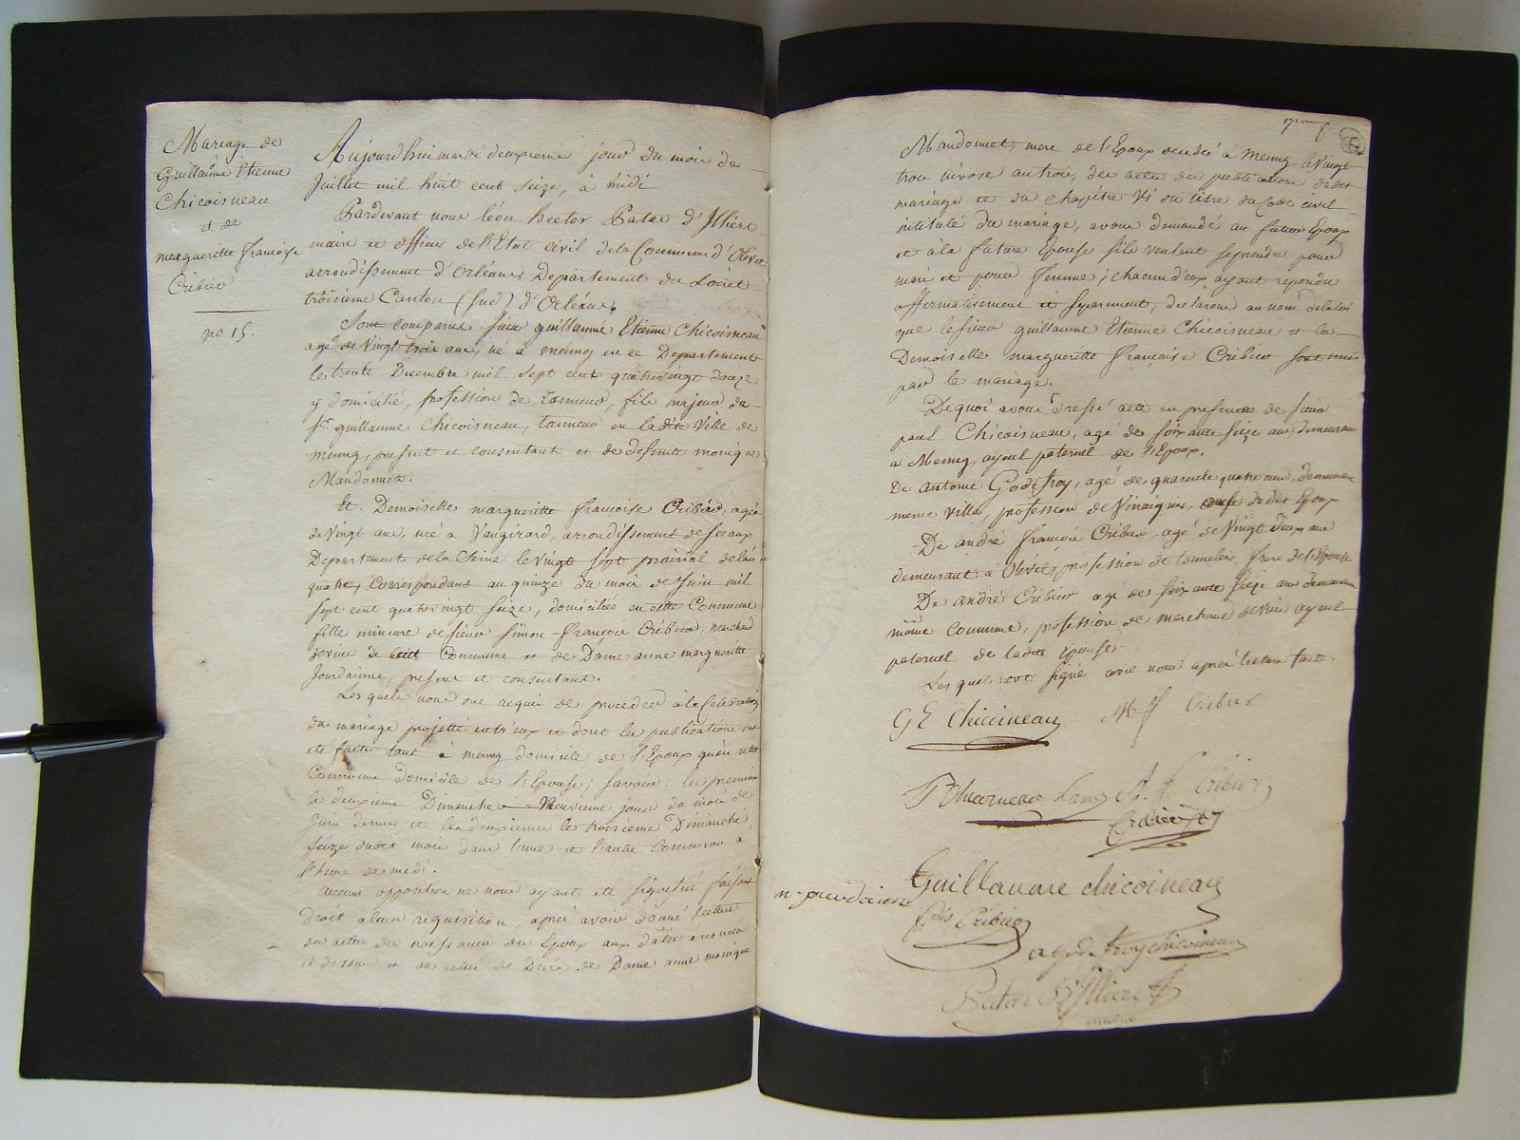 Mariage de
Guillaume Etienne
Chicoisneau
et de
marguerette francoise
Cribier
no 15.
Aujourdhui mardi deuxieme jour du mois de
Juillet mil huit cent seize, à midi
Pardevant nous léon hector Patas d'Illiers
maire et officier de l'Etat civil de la Commune d'Olivet
arrondissement d'Orléans Departement du Loiret
troisieme Canton (sud) d'Orléans,
Sont comparus sieur guillaume Etienne Chicoisneau
agé de vingt trois ans, né à meung en ce Departement
le trente Decembre mil sept cent quatrevingt douze
y domicilié, profession de tanneur, fils majeur du
Sr. guillaume Chicoisneau, tanneur en ladite Ville de
meung, present et consentant et de deffunte monique
Mandonnet.
Et Demoiselle marguerite francoise Cribier, agée
de vingt ans, née à Vaugirard, arrondissement de sceaux
Departement de la Seine le vingt sept prairial de l'an
quatre, correspondant au quinze du mois de Juin mil
sept cent quatrevingt seize, domiciliée en cette Commune
fille mineure de sieur simon francois Cribier, marchand
de vin de cette Commune et de Dame anne marguerite
Jourdainne, present et consentant.
Lesquels nous ont requis de proceder à la celebration
du mariage projetté entr'eux et dont les publications ont
été faites tant à meung domicile de l'Epoux qu'en notre
Commune domicile de l'Epouse; savoir: la premiere
le deuxieme Dimanche neuvieme jour du mois de
Juin dernier et la deuxieme le troisieme Dimanche
seize dudit mois dans l'une et l'autre Commune à
l'heure de midi.
aucune opposition ne nous ayant été signifiée faisant
droit à leur requisition, après avoir donné lecture
des actes de naissance des Epoux aux dates énoncées
ci dessus et de celui de Décès de Dame anne monique
Mandonnet, mere de l'Epoux decedée à Meung le vingt
trois nivose an trois, des actes de publications dudit
mariage et du chapitre VI du titre du Code civil
intitulé du mariage, avons demandé au futur Epoux
et à la future Epouse s'ils veulent se prendre pour
mari et pour femme; chacun d'eux ayant repondu
affirmativement et separement, declarons au nom de la loi
que le sieur guillaume Etienne Chicoisneau et la
Demoiselle marguerite francoise Cribier sont unis
par le mariage.
De quoi avons dressé acte en presence de sieur
paul Chicoisneau, agé de soixante seize ans, demeurant
à Meung, ayeul paternel de l'Epoux.
De antoine Godefroy, agé de quarante quatre ans, demeurant
meme ville, profession de Vinaigrier, dudit Epoux
De andré francois Cribier agé de vingt deux ans
demeurant à Olivet, profession de tonnelier, frere de l'Epouse
De andré Cribier agé de soixante seize ans demeurant
même commune, profession de marchand de vin ayeul
paternel de ladite Epouse.
Lesquels ont signé avec nous après lecture faite.
GE Chicoineau M f Cribier
A. f. Cribier
Cribier
Guillaume chicoineau
Cribier
Patas d'Illiers
maire